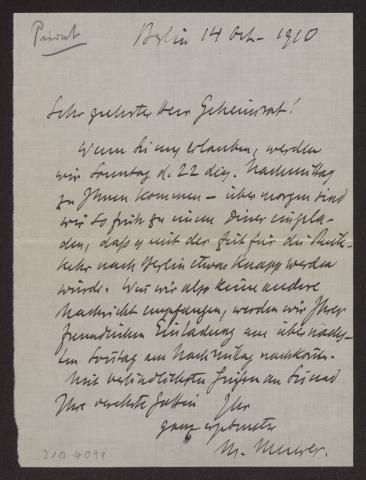 Privat
Berlin 14 Oct. 1910
Sehr geehrter Herr Geheimrat!
Wenn Sie uns erlauben, werden
wir Sonntag d. 22 dies. Nachmittag
zu Ihnen kommen – übermorgen sind
wir so früh zu einem Diner eingela-
den, dass es mit der Zeit für die Rück-
kehr nach Berlin etwas knapp werden
würde. Wenn wir also keine andere
Nachricht empfangen, werden wir Ihrer
freundlichen Einladung am übernäch-
sten Sonntag am Nachmittag nachkom.
Mit verbindlichsten Grüßen an Sie und
Ihre verehrte Gattin Ihr
ganz ergebenster
M. Meurer.
D 10. 4099